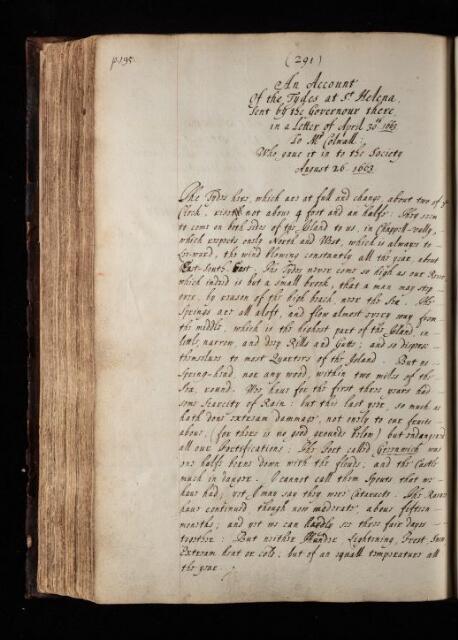 p.195.
(291)
An Account
Of the Tydes at St Helena,
Sent by the Governour there,
in a Letter of April 30th 1663
To Mr Colwall:
Who gave it in to the Society
August 26. 1663
The Tydes here, which are at full and change, about two of ye
Clock, riseth not above 4 foot and an halfe: They seem
to come on both sides of the Island to us, in Chappell-vally,
which respects only North and West, which is always to
Lee-ward, the wind blowing constantly all the year, about
East-South-East. The Tydes never come so high as our River
which indeed is but a small brook, that a man may step
over, by reason of the high beach, near the Sea. The
Springs are all aloft, and flow almost every way from
the middle, which is the highest part of the Island, in
little, narrow, and deep Rills and Gutts; and so disperse
themselves to most Quarters of the Island. But no
Spring-head, nor any wood, within two miles of the
Sea, round. Wee have for the first three years had
some Scarcity of Rain: but this last year, so much as
hath done extream dammage, not only to our fruits
above, (for there is no good grounds below) but endangered
all our Fortifications: The Fort called Greenwich was
one halfe borne down with the flouds; and the Castle
much in danger. I cannot call them Spouts that we
have had; yet I may say they were Cataracts. The Raines
have continued, though now moderate, above fifteen
months; and yet we can hardly see three fair dayes
together: But neither Thunder, Lightening, Frost, Snow
Extream heat or cold; but of an equall temperature all
the year.